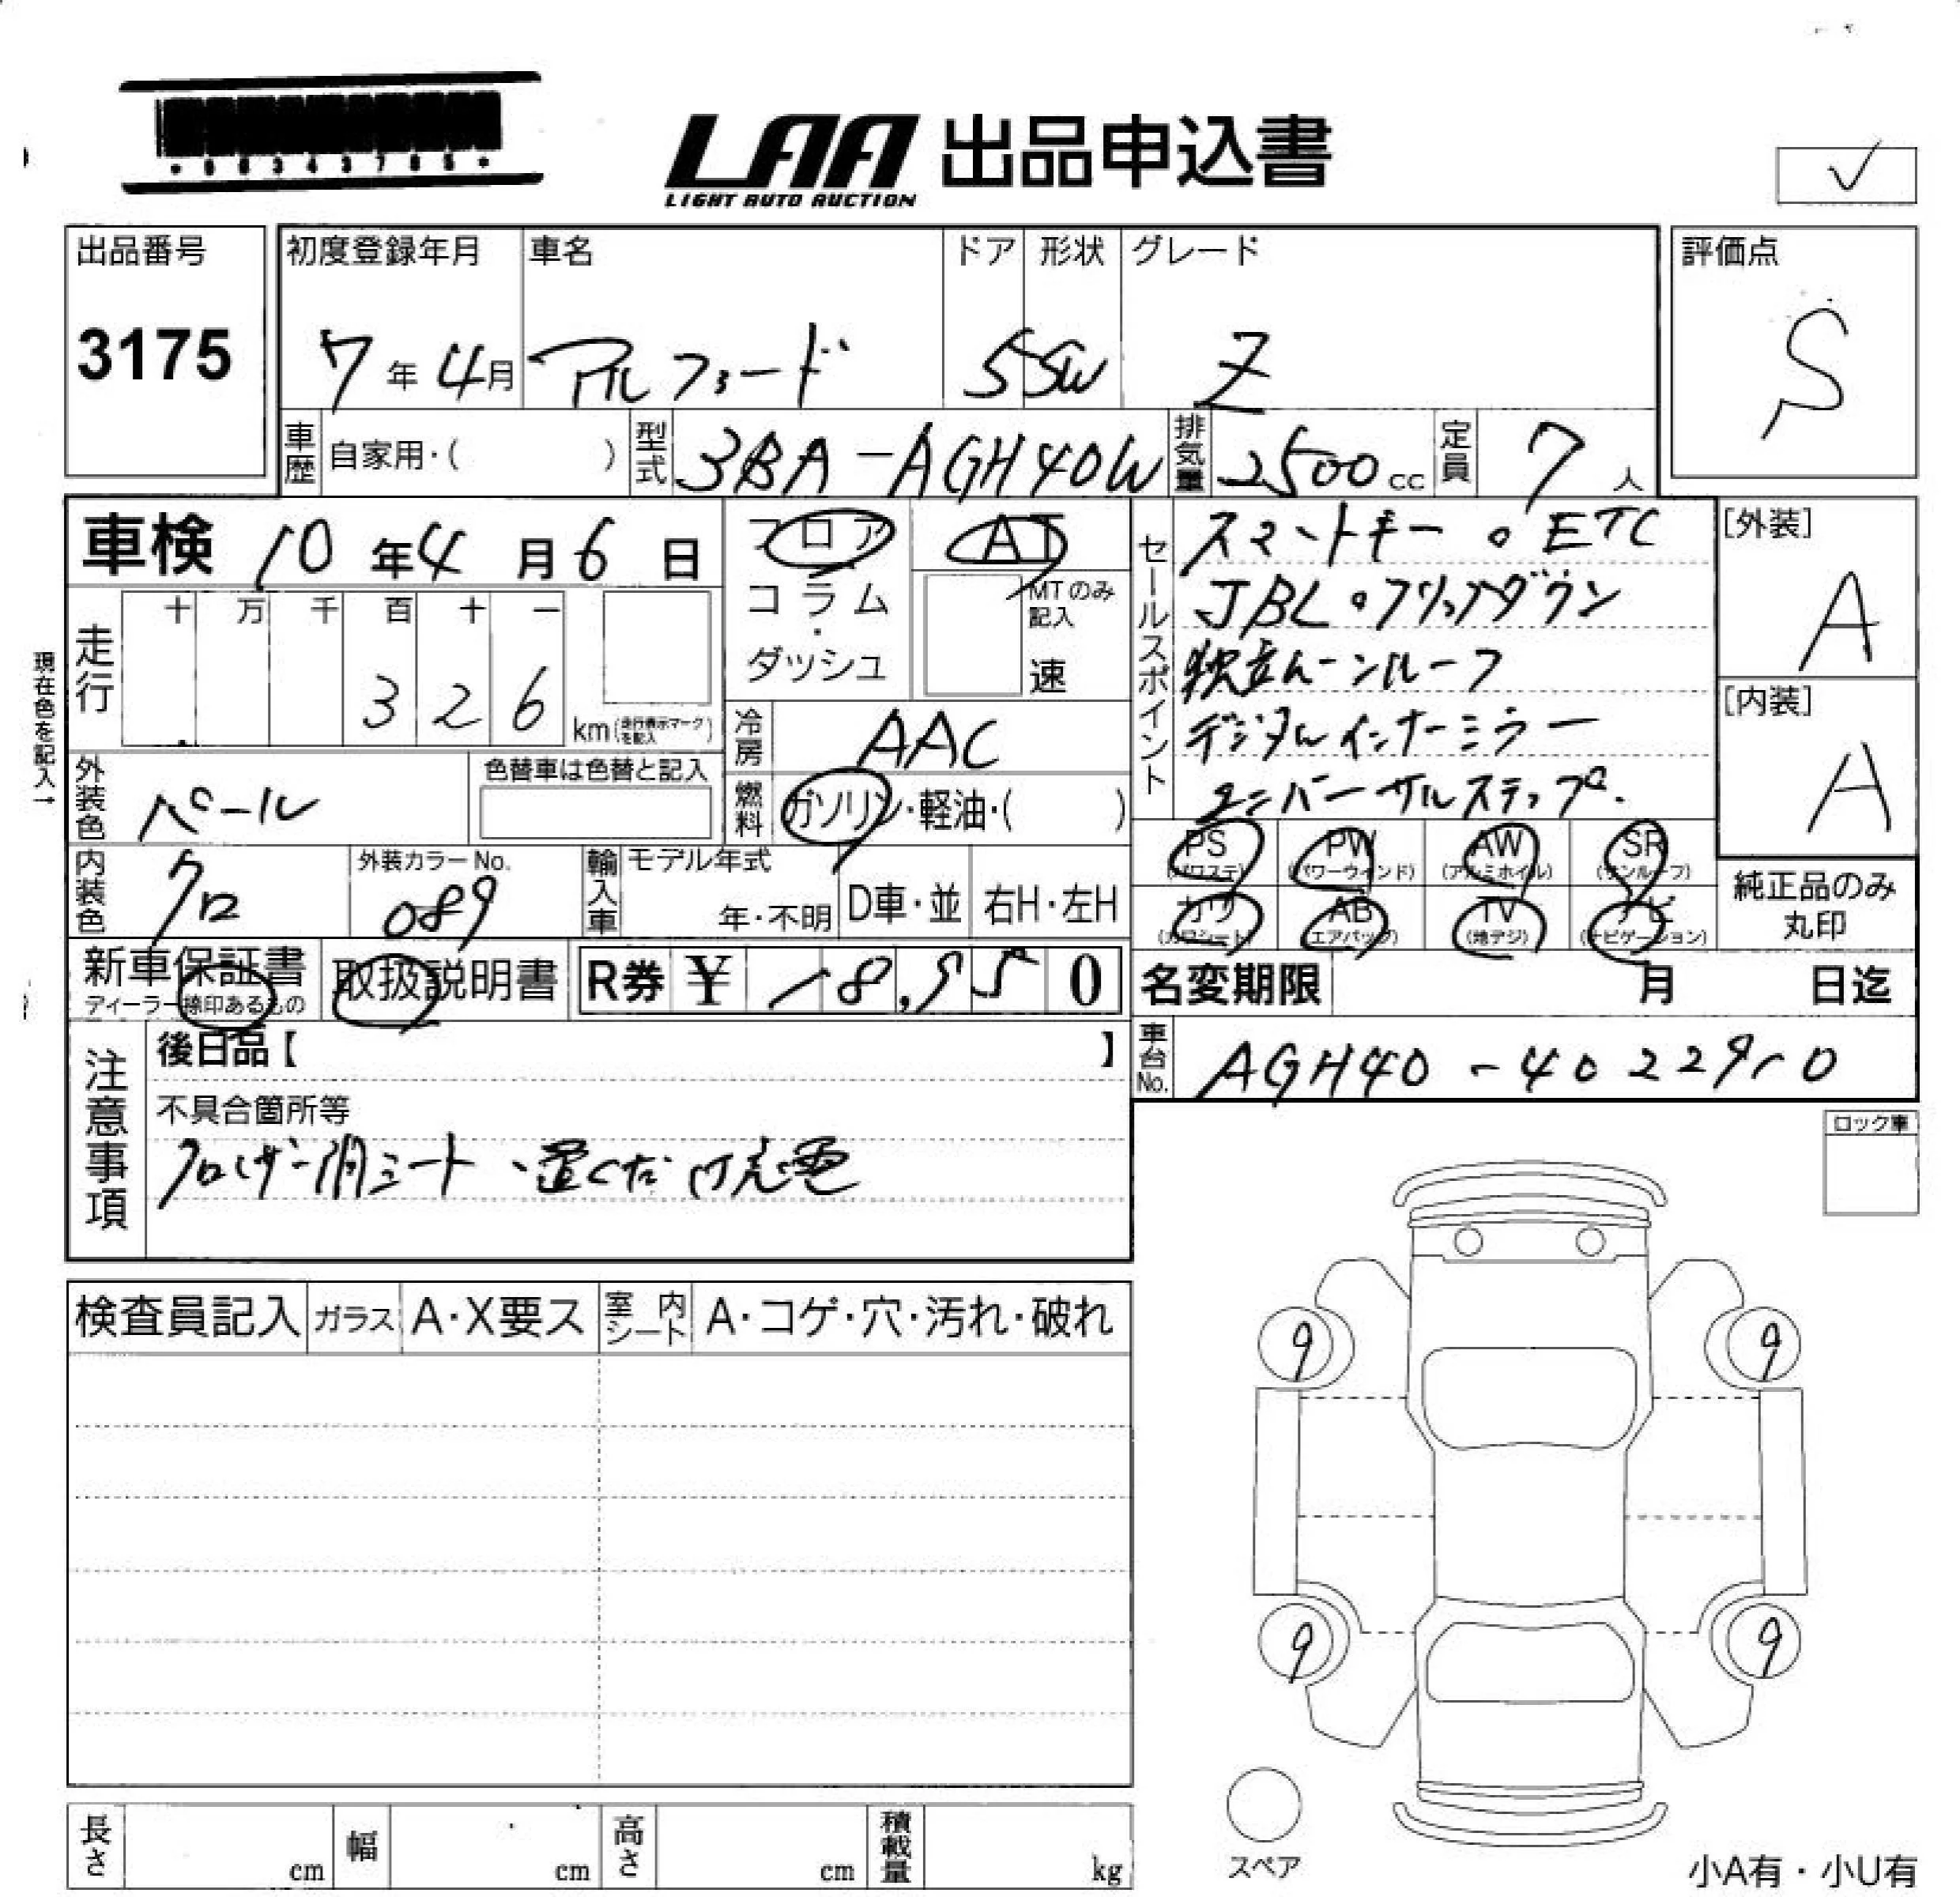 LAA 出品申込書
LIGHT AUTO AUCTION
出品番号
3175
初度登録年月
7年4月
車名
アルファード
ドア
5
形状
SW
グレード
Z
評価点
S
車歴 自家用・( )
型式 3BA-AGH40W
排気量 2500cc
定員 7人
車検 10年4月6日
フロア
コラム・ダッシュ
AT
MTのみ記入
速
走行
十 万 千 百 十 一
3 2 6 km(走行表示マークを記入)
現在色を記入→
冷房 AAC
燃料 ガソリン・軽油・( )
外装色 パール
色替車は色替と記入
内装色 クロ
外装カラーNo.
089
輸入車 モデル年式
年・不明
D車・並
右H・左H
セールスポイント
スマートキー。ETC
JBL。フリップダウン
独立ムーンルーフ
デジタルインナーミラー
ユニバーサルステップ.
[外装]
A
[内装]
A
PS (パワステ)
PW (パワーウィンド)
AW (アルミホイル)
SR (サンルーフ)
カワ (カワシート)
AB (エアバッグ)
TV (地デジ)
ナビ (ナビゲーション)
純正品のみ
丸印
新車保証書
ディーラー捺印あるもの
取扱説明書
R券 ¥ 18,950
名変期限 月 日迄
車台No. AGH40-40229
注意事項
後日品【 】
不具合箇所等
シート、置くだけ充電
ロック車
検査員記入
ガラス
A・X要ス
室内シート
A・コゲ・穴・汚れ・破れ
9 9
9 9
スペア
長さ cm
幅 cm
高さ cm
積載量 kg
小A有・小U有